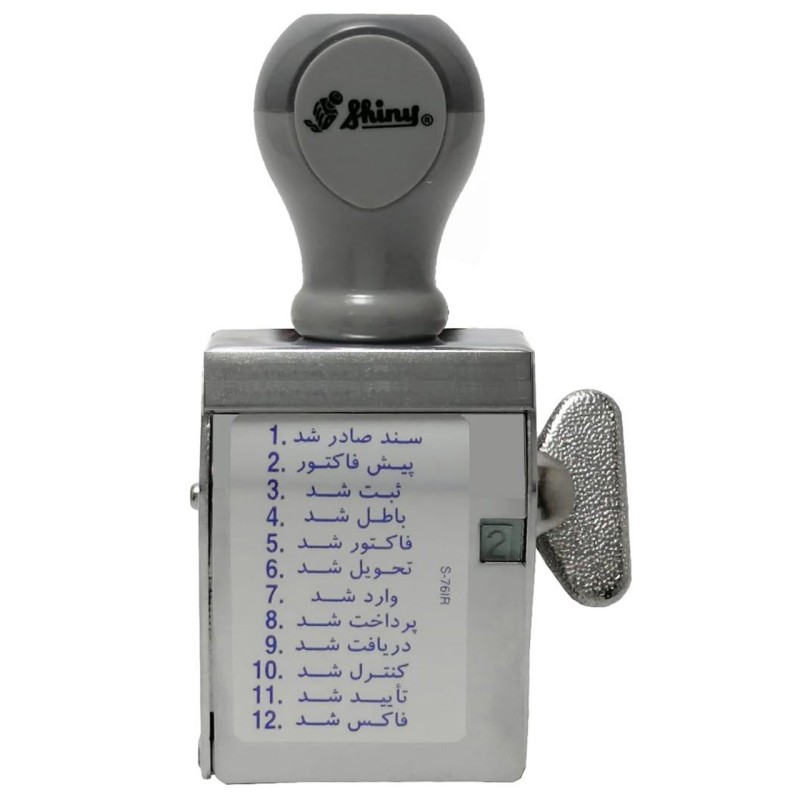 Shiny®
1. سند صادر شد
2. پیش فاکتور
3. ثبت شد
4. باطل شد
5. فاکتور شد
6. تحویل شد
7. وارد شد
8. پرداخت شد
9. دریافت شد
10. کنترل شد
11. تأیید شد
12. فاکس شد
2
S-76IR